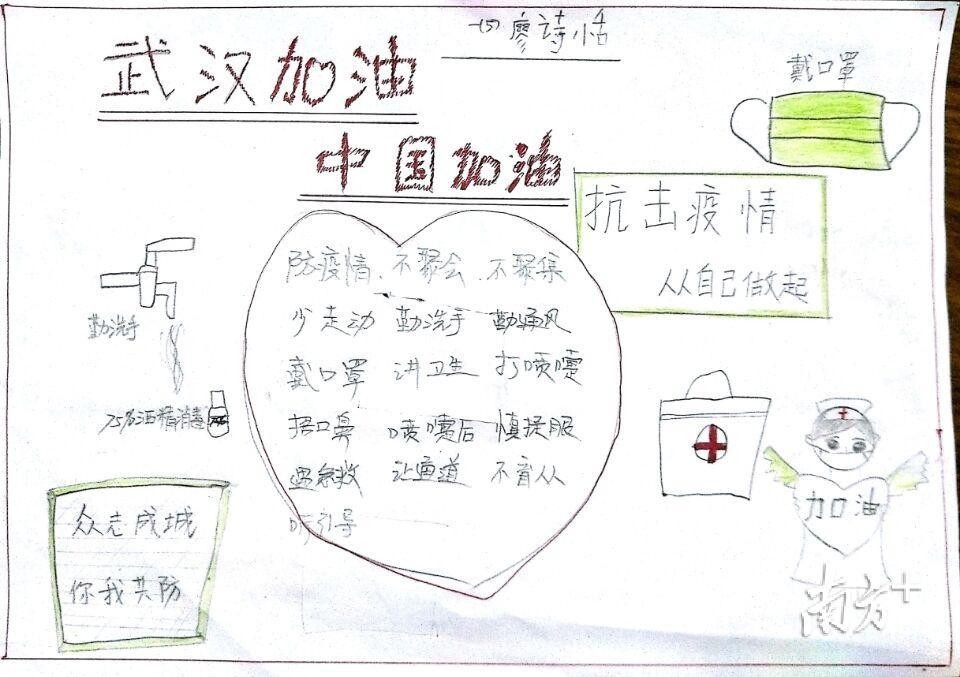 一(5) 廖诗恬
武汉加油
戴口罩
中国加油
抗击疫情
从自己做起
防疫情、不聚会、不聚集
少走动 勤洗手 勤通风
戴口罩 讲卫生 打喷嚏
捂口鼻 喷嚏后 慎揉眼
遇急救 让通道 不盲从
听引导
勤洗手
75%酒精消毒
众志成城
你我共防
加油
南方+